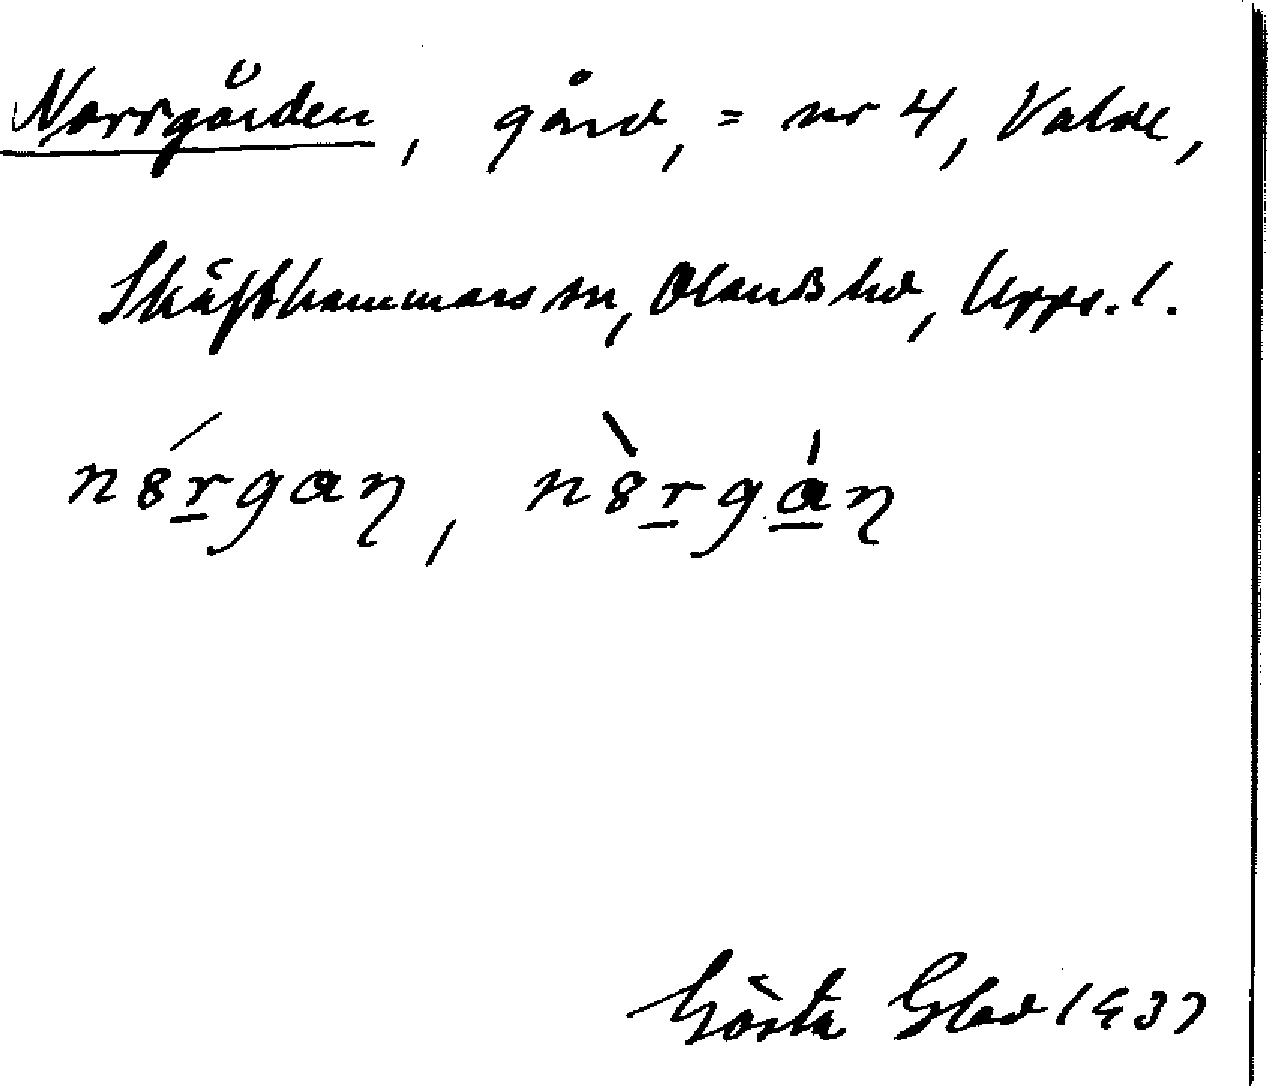 Norrgården, gård, = nr 4, Valde,
Skäfthammars sn, Olands hd, Upps. l.
n8́rgan, n8̀rgán
Gösta Glad 1937